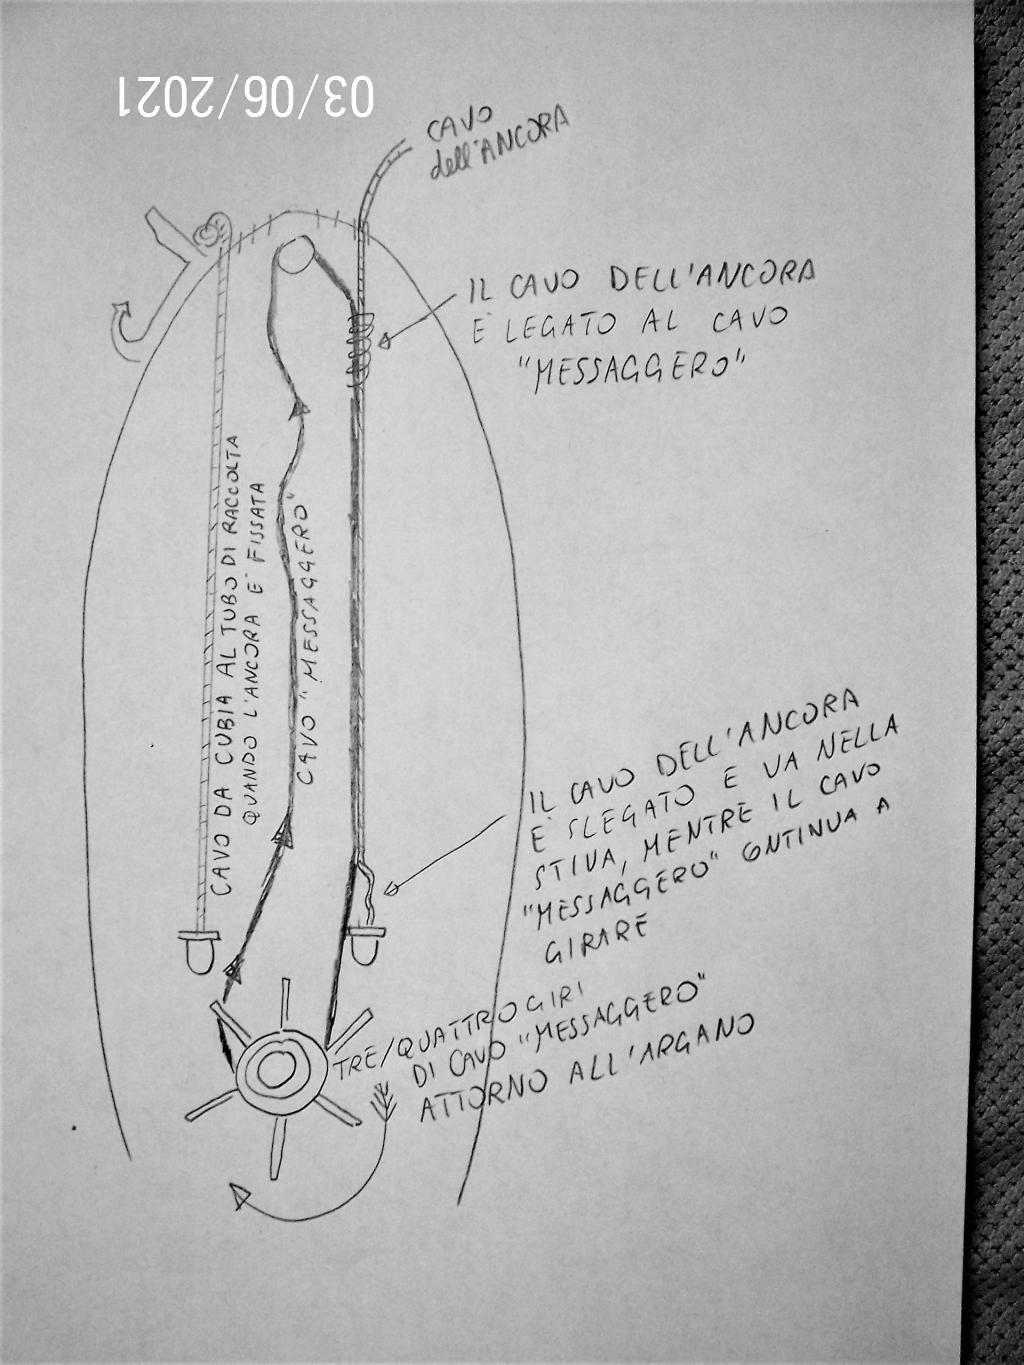 03/06/2021
CAVO
dell'ANCORA
IL CAVO DELL'ANCORA
E' LEGATO AL CAVO
"MESSAGGERO"
CAVO DA CUBIA AL TUBO DI RACCOLTA
QUANDO L'ANCORA E' FISSATA
CAVO "MESSAGGERO"
IL CAVO DELL'ANCORA
E' SLEGATO E VA NELLA
STIVA, MENTRE IL CAVO
"MESSAGGERO" CONTINUA A
GIRARE
TRE/QUATTRO GIRI
DI CAVO "MESSAGGERO"
ATTORNO ALL'ARGANO